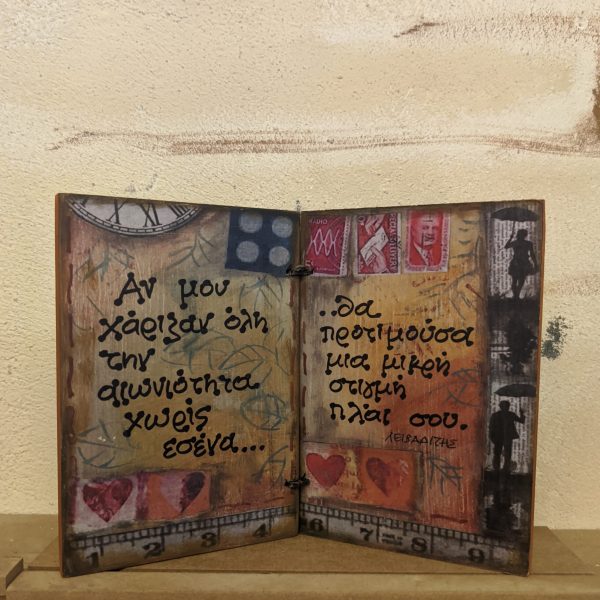 Αν μου
χάριζαν όλη
την
αιωνιότητα
χωρίς
εσένα...
..θα
προτιμούσα
μια μικρή
στιγμή
πλάι σου.
ΛΕΙΒΑΔΙΤΗΣ
1 2 3
6 7 8 9